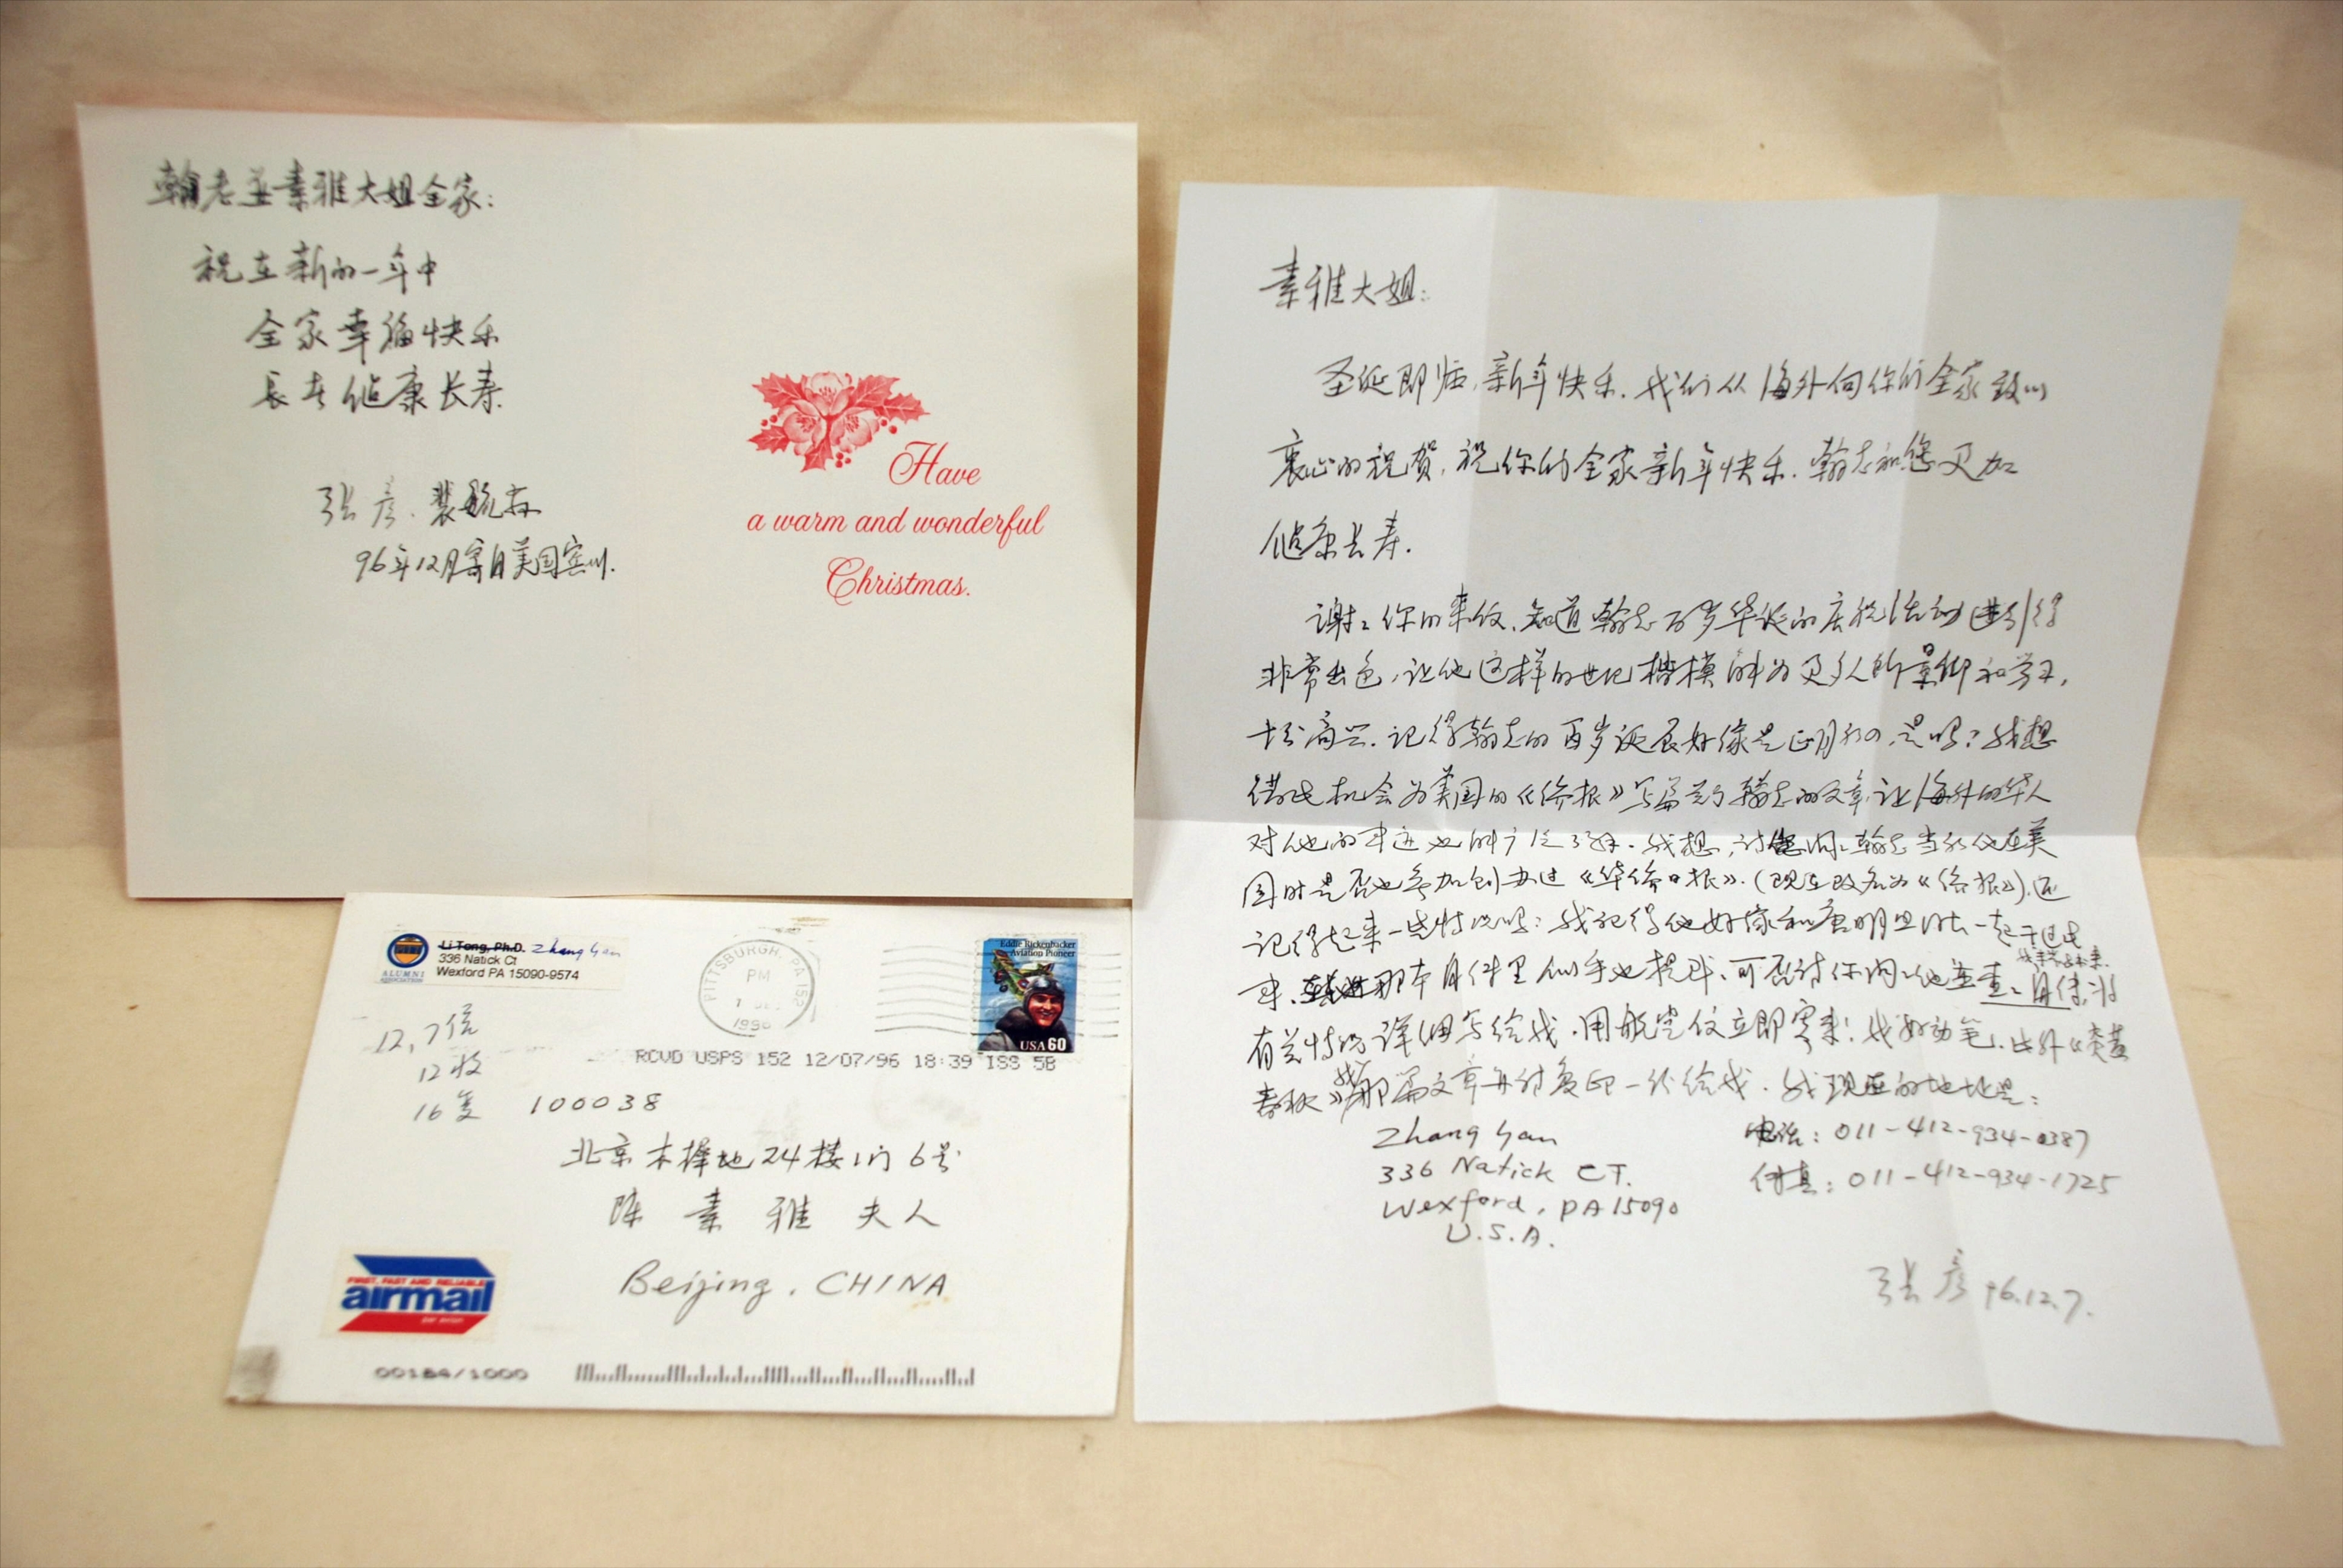 翰老并素雅大姐全家：
祝在新的一年中
全家幸福快乐
长寿健康长寿
张彦、裴毓荪
96年12月寄自美国宾州.
Have
a warm and wonderful
Christmas.
ALUMNI
ASSOCIATION
Li Tong, Ph.D. Zhang Yan
336 Natick Ct
Wexford PA 15090-9574
PITTSBURGH, PA 152
PM
1996
Eddie Rickenbacker
Aviation Pioneer
USA 60
RCVD USPS 152 12/07/96 18:39 ISS 5B
12,7信
12收
16复
100038
北京木樨地24楼1门6号
陈素雅夫人
Beijing, CHINA
FIRST, FAST AND RELIABLE
airmail
00184/1000
素雅大姐：
圣诞即临，新年快乐.我们从海外向你们全家致以
衷心的祝贺，祝你们全家新年快乐.翰老和您更加
健康长寿.
谢谢你的来信、知道翰老百岁华诞的庆祝活动进行得
非常出色，让他这样的世纪楷模能为更多人所景仰和学习，
十分高兴.记得翰老的百岁诞辰好像是正月初四，是吗？我想
借此机会为美国的《侨报》写篇关于翰老的文章，让海外的华人
对他的事迹也能广泛了解.我想，请您问问翰老当初他在美
国时是否也参加创办过《华侨日报》.（现在改名为《侨报》），还
记得起来一些情况吗？我记得他好像和唐明照一起干过此
事、那本自传里似乎也提到、可否请你问问他并查查自传，将
我手头没带来.
有关情况详细写给我.用航空信立即寄来！我好动笔.此外《炎黄
春秋》我那篇文章并请复印一份给我.我现在的地址是：
Zhang Yan
336 Natick CT.
Wexford, PA 15090
U.S.A.
电话：011-412-934-0387
传真：011-412-934-1725
张彦 96.12.7.